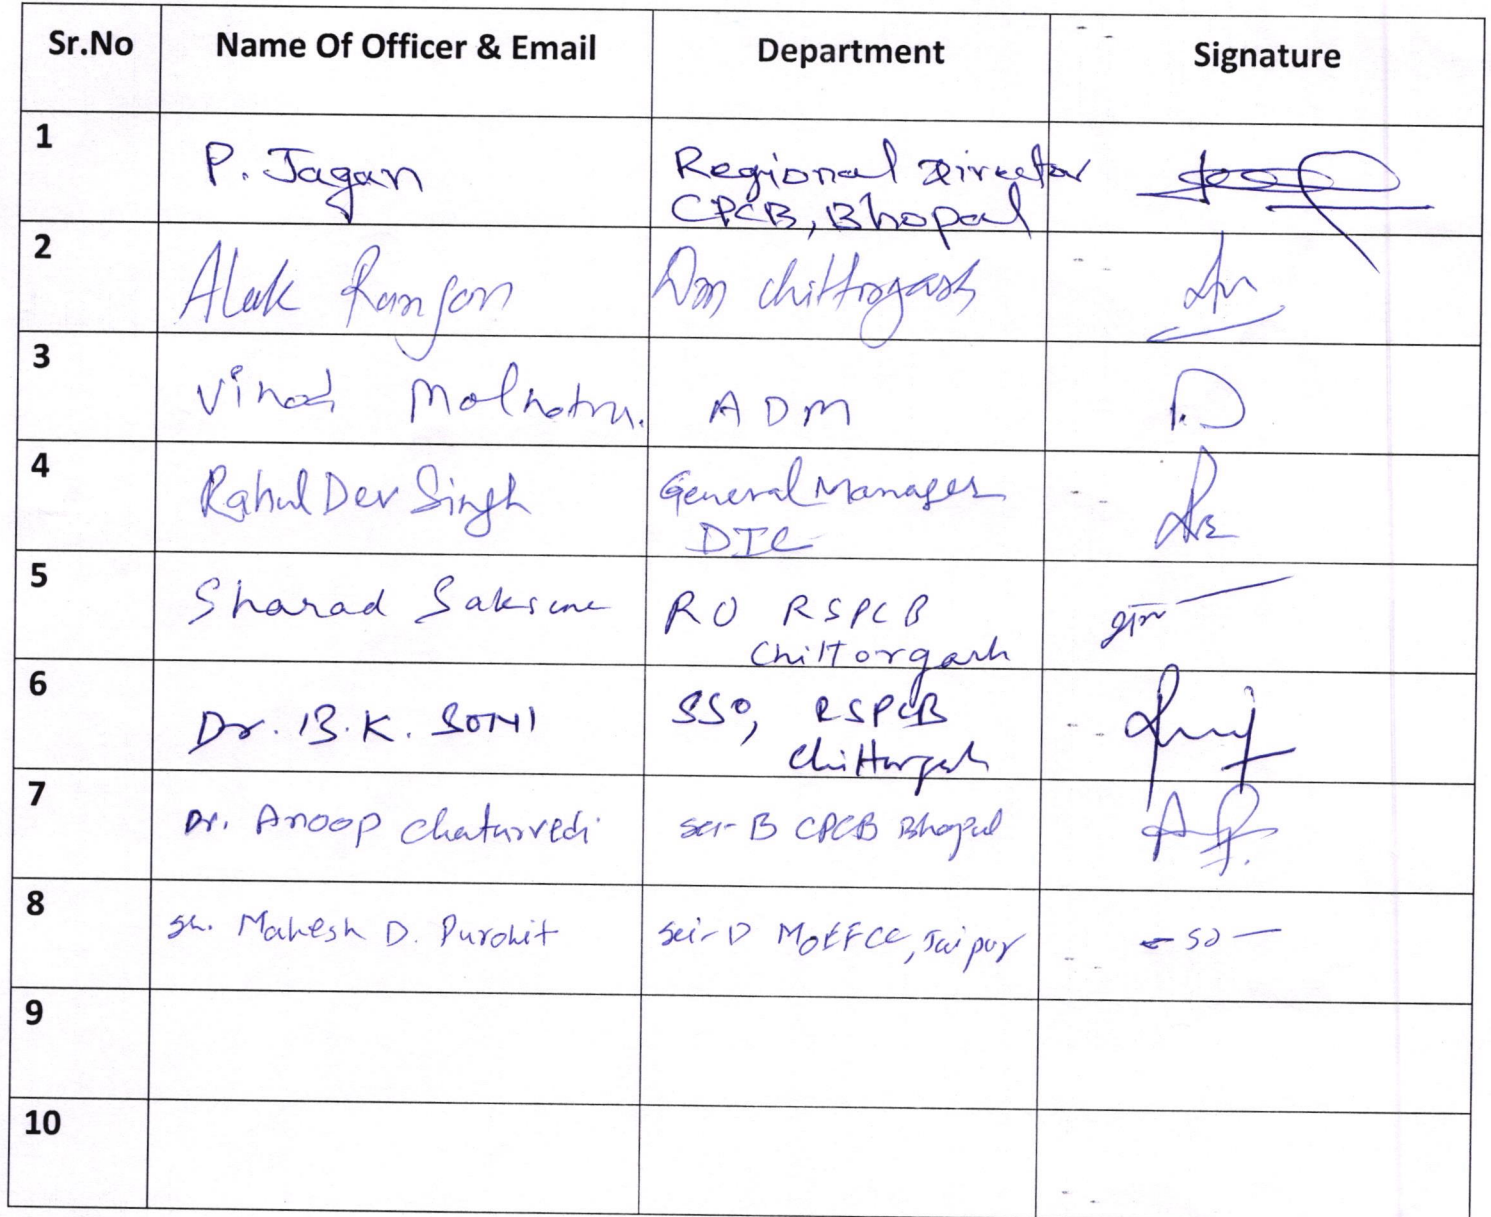 Sr.No Name Of Officer & Email Department Signature
1 P. Jagan Regional Director
CPCB, Bhopal
2 Alok Ranjan Dm Chittorgarh
3 Vinod Malhotra. ADM
4 Rahul Dev Singh General Manager
DIC
5 Sharad Saksena RO RSPCB
Chittorgarh
6 Dr. B.K. SONI SSO, RSPCB
Chittorgarh
7 Dr. Anoop Chaturvedi Sci-B CPCB Bhopal
8 Sh. Mahesh D. Purohit Sci-D MoEFCC, Jaipur - SD -
9
10